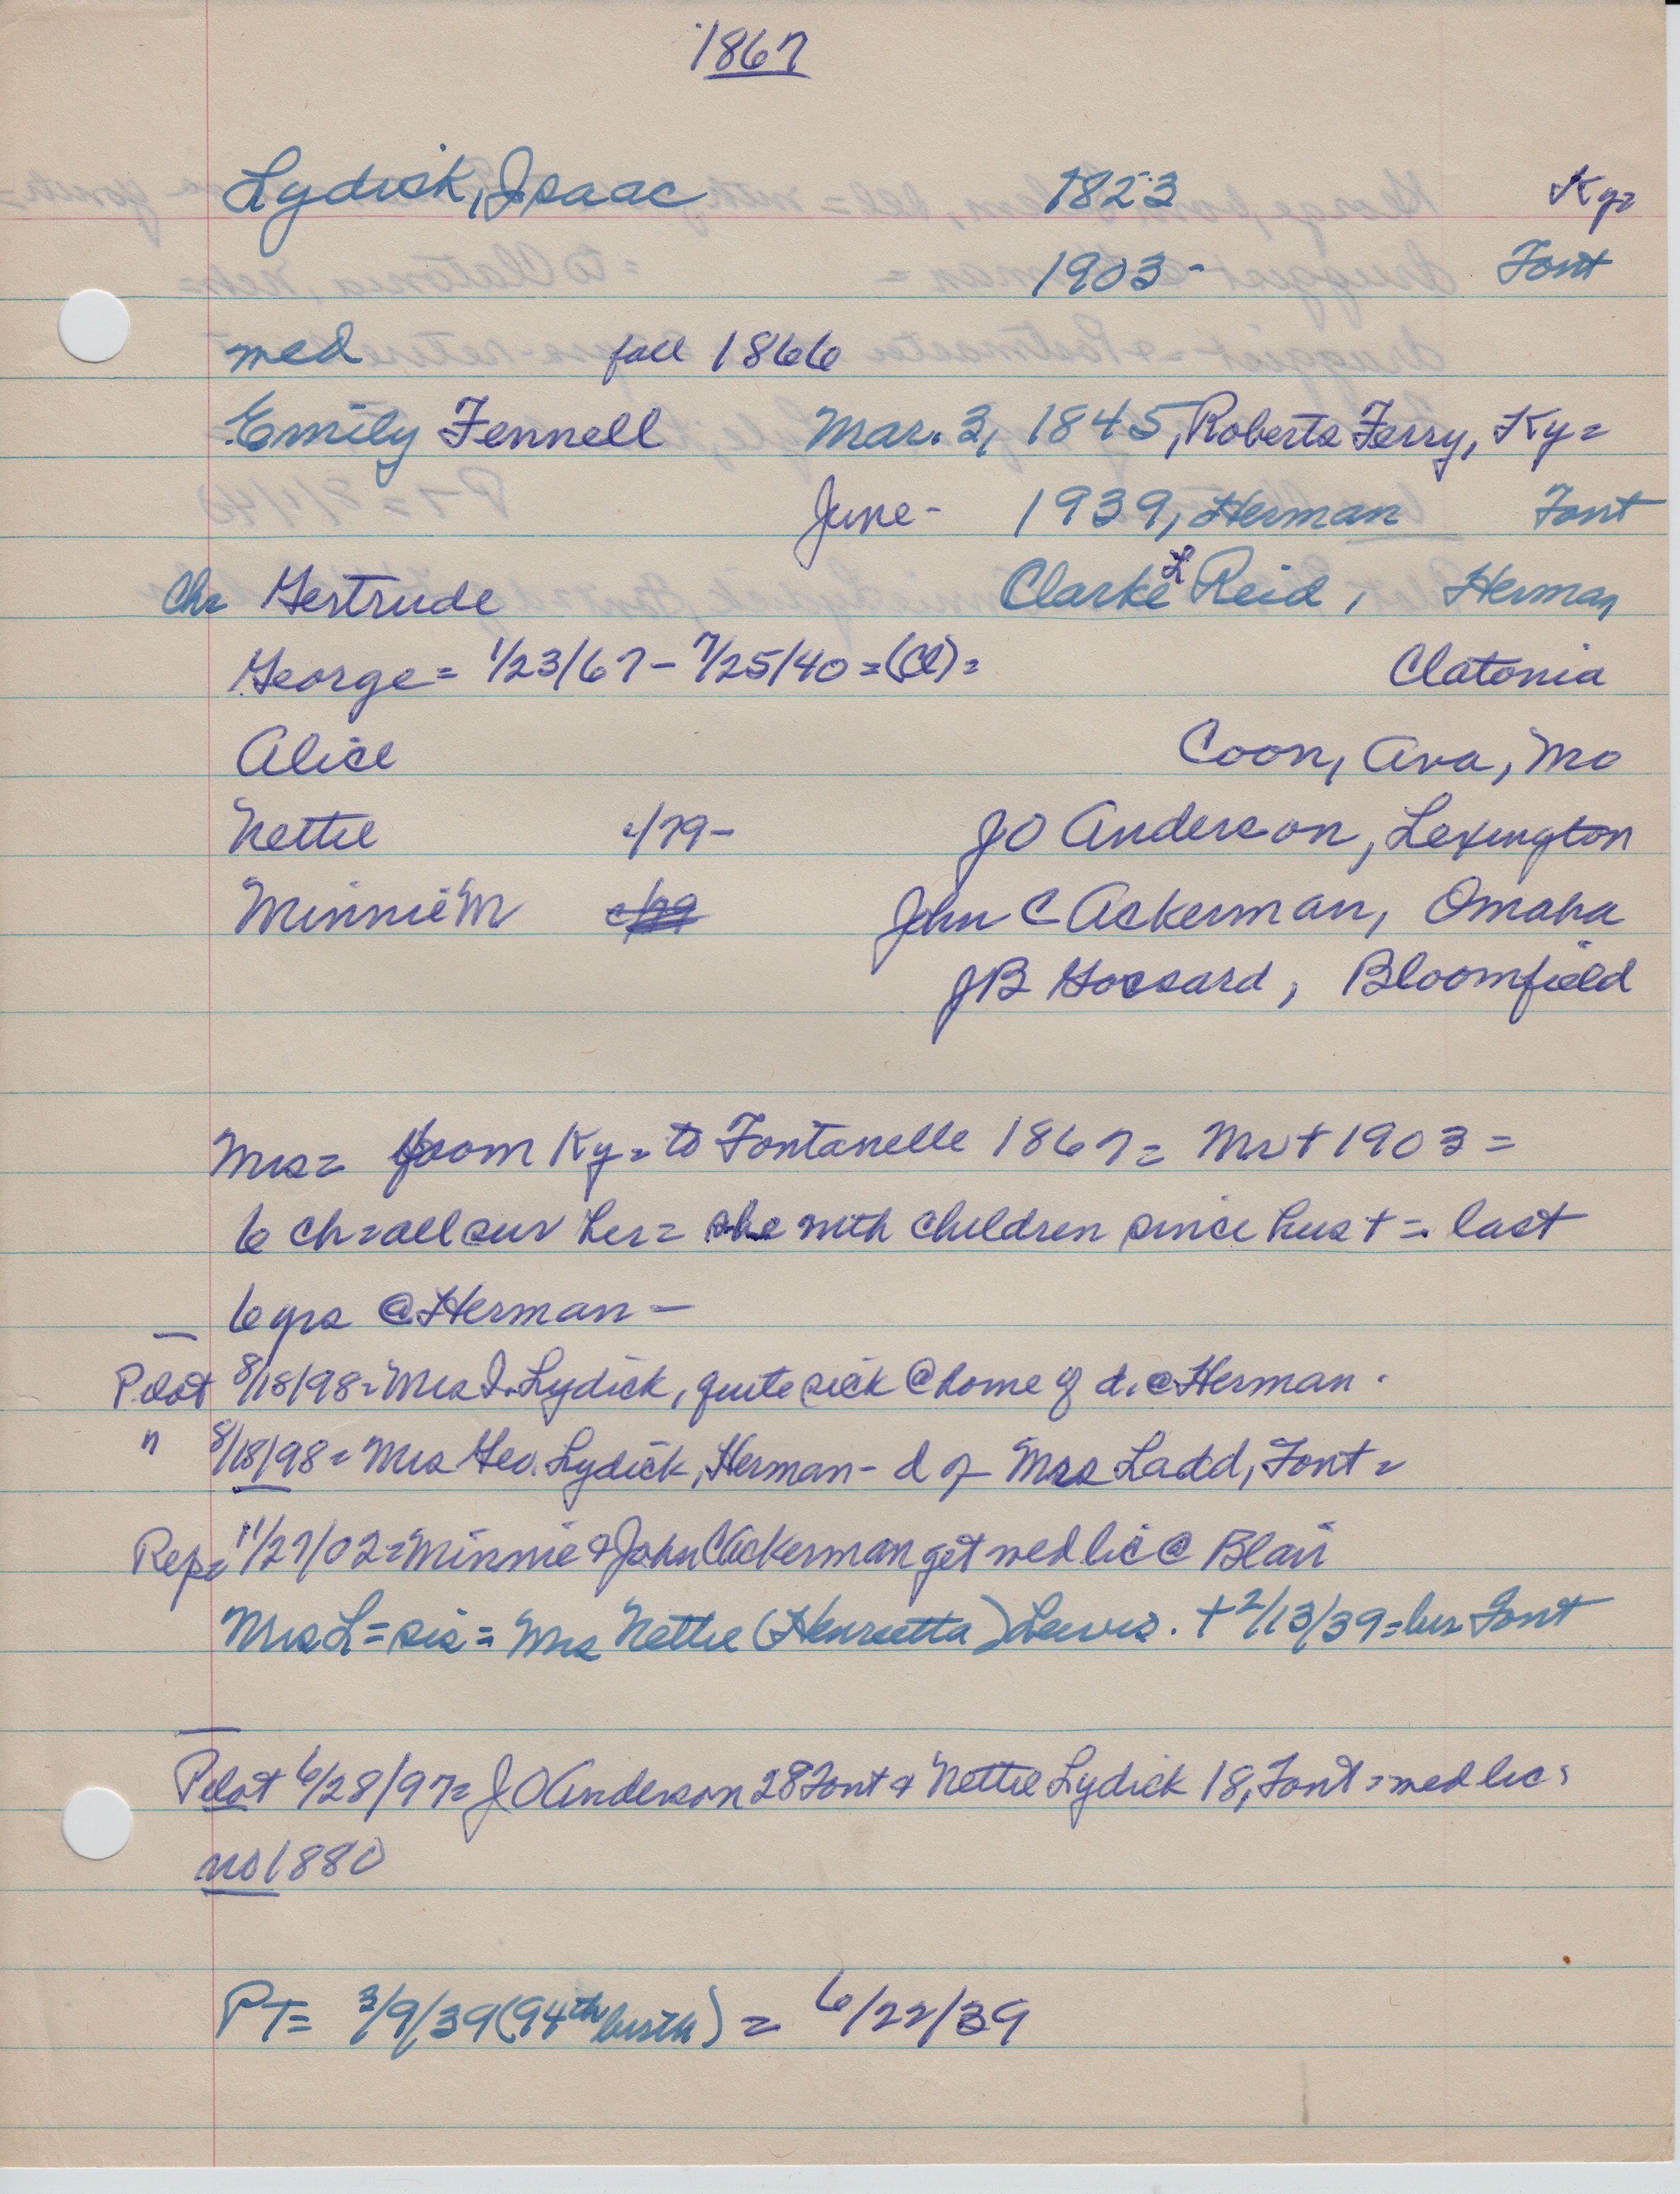 1867
Lydick, Isaac 1823 Ky=
1903- Font
med fall 1866
Emily Fennell Mar. 3, 1845, Roberts Ferry, Ky=
June- 1939, Herman Font
Ch= Gertrude Clarke L Reid, Herman
George= 1/23/67-7/25/40=(Cl)= Clatonia
Alice Coon, Ava, Mo
Nettie c/79- JO Anderson, Lexington
Minnie M c/79 John C Ackerman, Omaha
JB Gossard, Bloomfield
Mrs= from Ky= to Fontanelle 1867= Mr + 1903=
6 ch=all sur her= she with children since hus + = last
6 yrs @ Herman-
Pilot 8/18/98=Mrs I. Lydick, quite sick @ home of d. @ Herman.
" 8/18/98= Mrs Geo. Lydick, Herman- d of Mrs Ladd, Font=
Rep= 11/27/02=Minnie & John C Ackerman get med lic @ Blair
Mrs L=sis= Mrs Nettie (Henrietta) Lewis. +2/13/39=bur Font
Pilot 6/28/97= J O Anderson 28 Font & Nettie Lydick 18, Font=med lic=
no 1880
PT= 3/9/39(94th birth) = 6/22/39